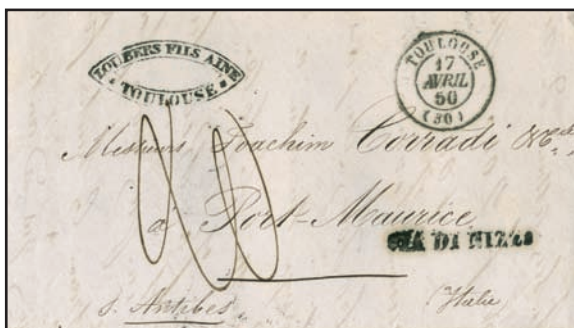 LOUBERS FILS AINE
TOULOUSE
TOULOUSE
17
AVRIL
50
(30)
Messieurs Joachim Corradi &Cie
à Port-Maurice
VIA DI NIZZA
p. Antibes.
Italie